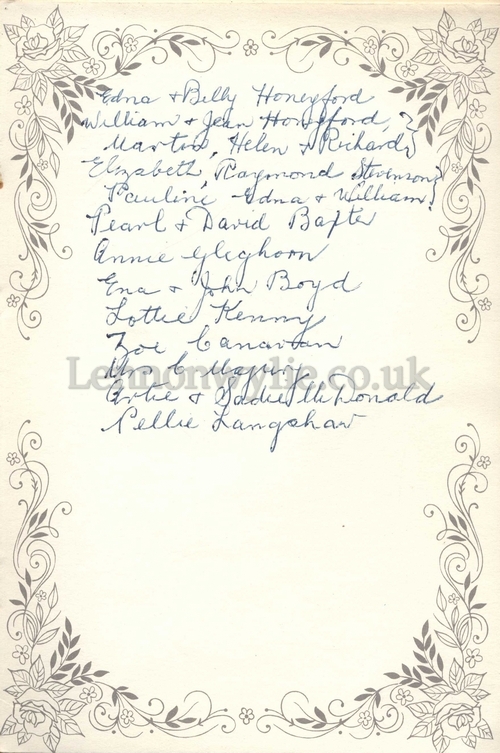 Edna + Billy Honeyford
William + Jean Honeyford, }
Martin, Helen + Richard }
Elizabeth, Raymond Stevinson }
Pauline Edna + William }
Pearl + David Baxter
Annie Gleghorn
Ena + John Boyd
Lottie Kenny
Zoe Canavan
Mrs C
Lennonwylie.co.uk
Artie + Sadie McDonald
Nellie Langshaw